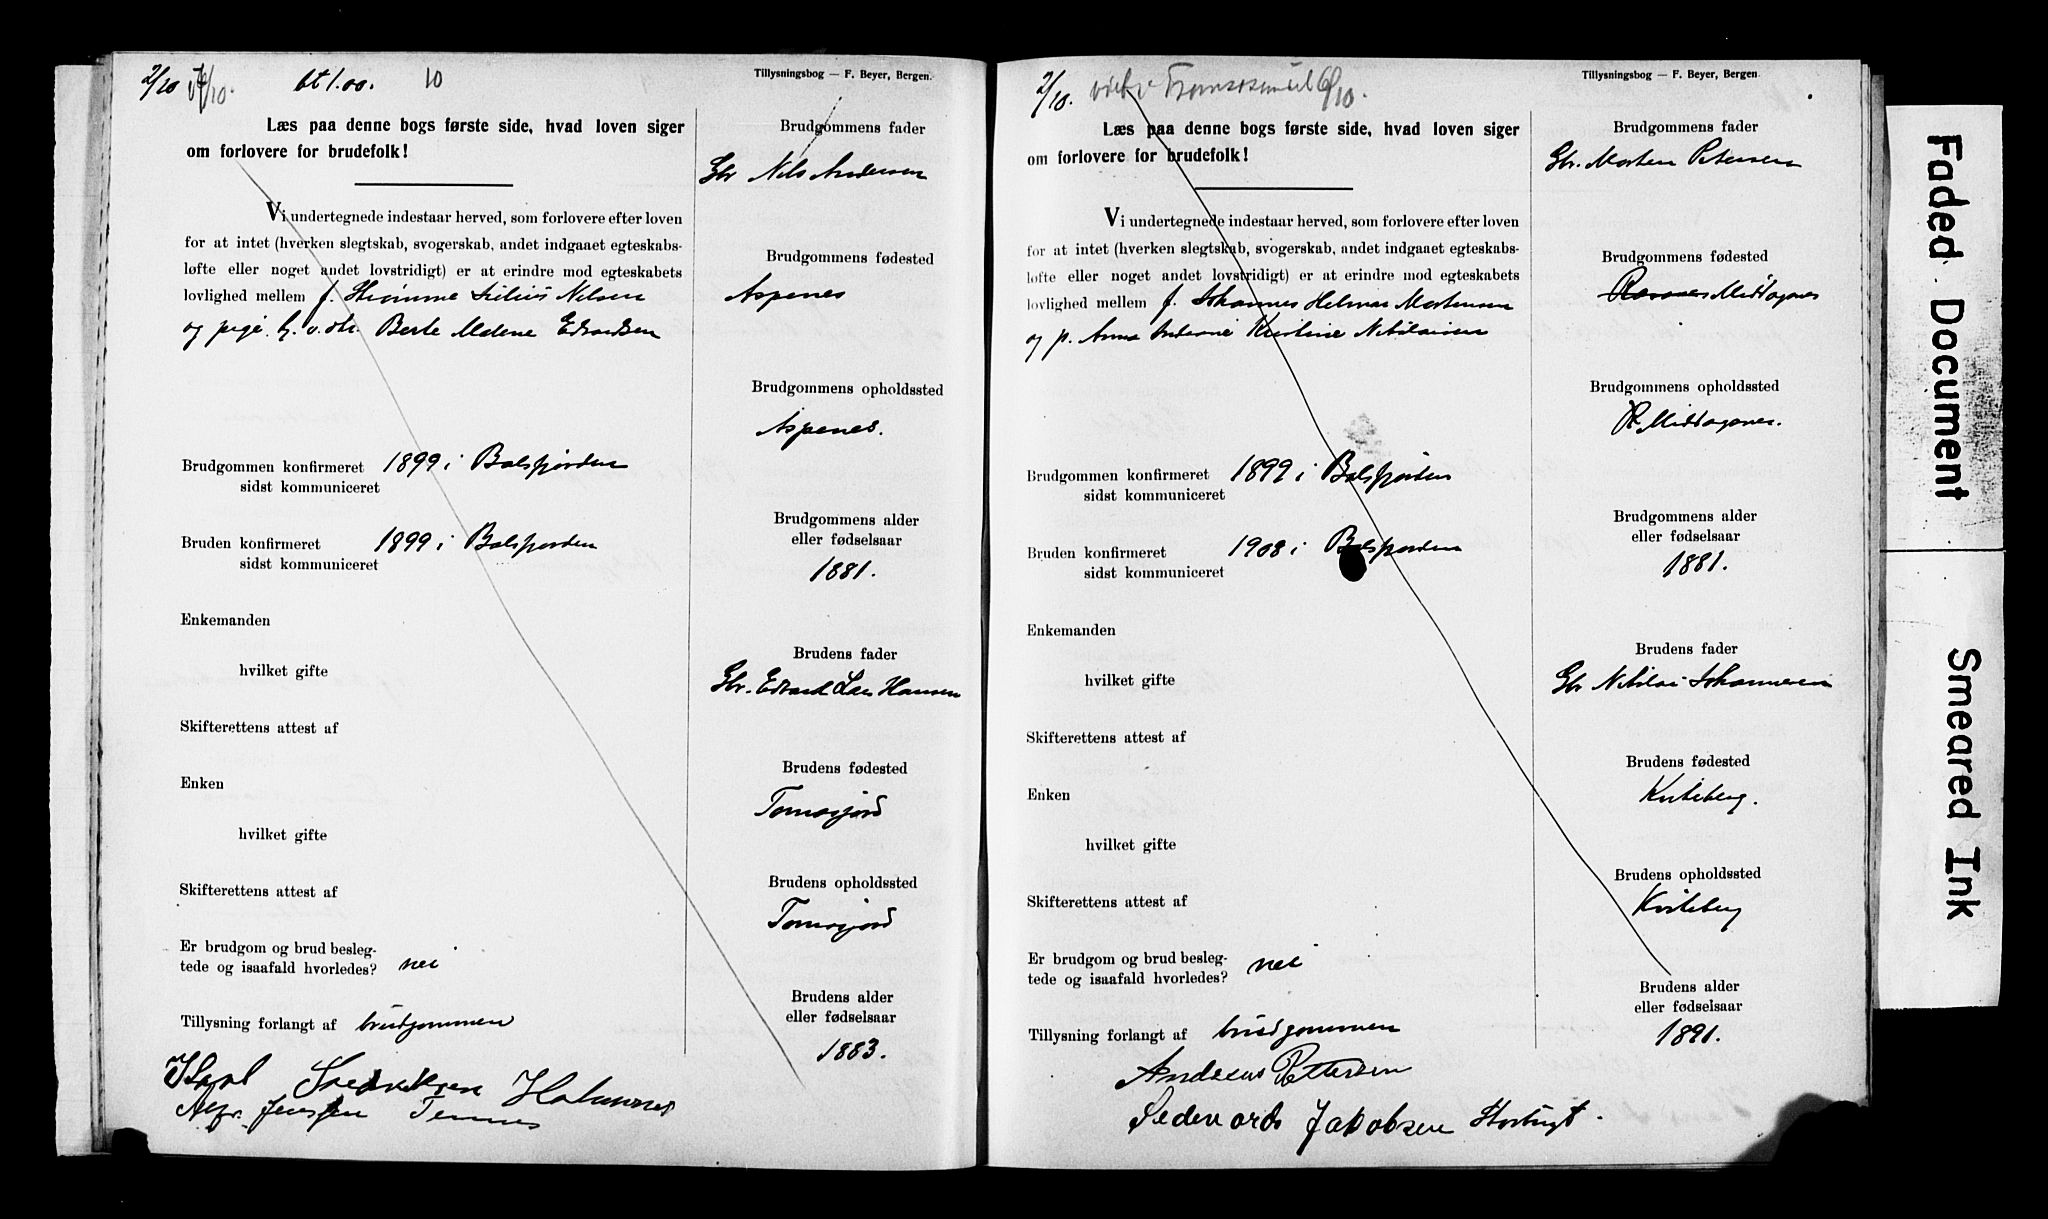 2/10 4/10. bt 1.00. 10
Tillysningsbog — F. Beyer, Bergen.
Læs paa denne bogs første side, hvad loven siger
om forlovere for brudefolk!
Vi undertegnede indestaar herved, som forlovere efter loven
for at intet (hverken slegtskab, svogerskab, andet indgaaet egteskabs-
løfte eller noget andet lovstridigt) er at erindre mod egteskabets
lovlighed mellem f. Nilsen
og pige Berte Malene Edvardsen
Brudgommen konfirmeret 1899 i Balsfjorden
sidst kommuniceret
Bruden konfirmeret 1899 i Balsfjorden
sidst kommuniceret
Enkemanden
hvilket gifte
Skifterettens attest af
Enken
hvilket gifte
Skifterettens attest af
Er brudgom og brud besleg-
tede og isaafald hvorledes? nei
Tillysning forlangt af brudgommen
Karl Fredriksen
Alfr. Jensen
Brudgommens fader
Gbr Nils Andersen
Brudgommens fødested
Aspenes
Brudgommens opholdssted
Aspenes.
Brudgommens alder
eller fødselsaar
1881.
Brudens fader
Gbr. Edvard Lars Hansen
Brudens fødested
Tomasjord
Brudens opholdssted
Tomasjord
Brudens alder
eller fødselsaar
1883.
2/10. 6/10.
Tillysningsbog — F. Beyer, Bergen.
Læs paa denne bogs første side, hvad loven siger
om forlovere for brudefolk!
Vi undertegnede indestaar herved, som forlovere efter loven
for at intet (hverken slegtskab, svogerskab, andet indgaaet egteskabs-
løfte eller noget andet lovstridigt) er at erindre mod egteskabets
lovlighed mellem f. Johannes Helmar Mortensen
og p. Anna Kristine Nikolaisen
Brudgommen konfirmeret 1899 i Balsfjorden
sidst kommuniceret
Bruden konfirmeret 1908 i Balsfjorden
sidst kommuniceret
Enkemanden
hvilket gifte
Skifterettens attest af
Enken
hvilket gifte
Skifterettens attest af
Er brudgom og brud besleg-
tede og isaafald hvorledes? nei
Tillysning forlangt af brudgommen
Andreas Pettersen
Jakobsen
Brudgommens fader
Gbr. Morten Petersen
Brudgommens fødested
Middagsnes
Brudgommens opholdssted
Middagsnes.
Brudgommens alder
eller fødselsaar
1881.
Brudens fader
Gbr Nikolai Johannesen
Brudens fødested
Kviteberg.
Brudens opholdssted
Kviteberg
Brudens alder
eller fødselsaar
1891.
Faded Document
Smeared Ink